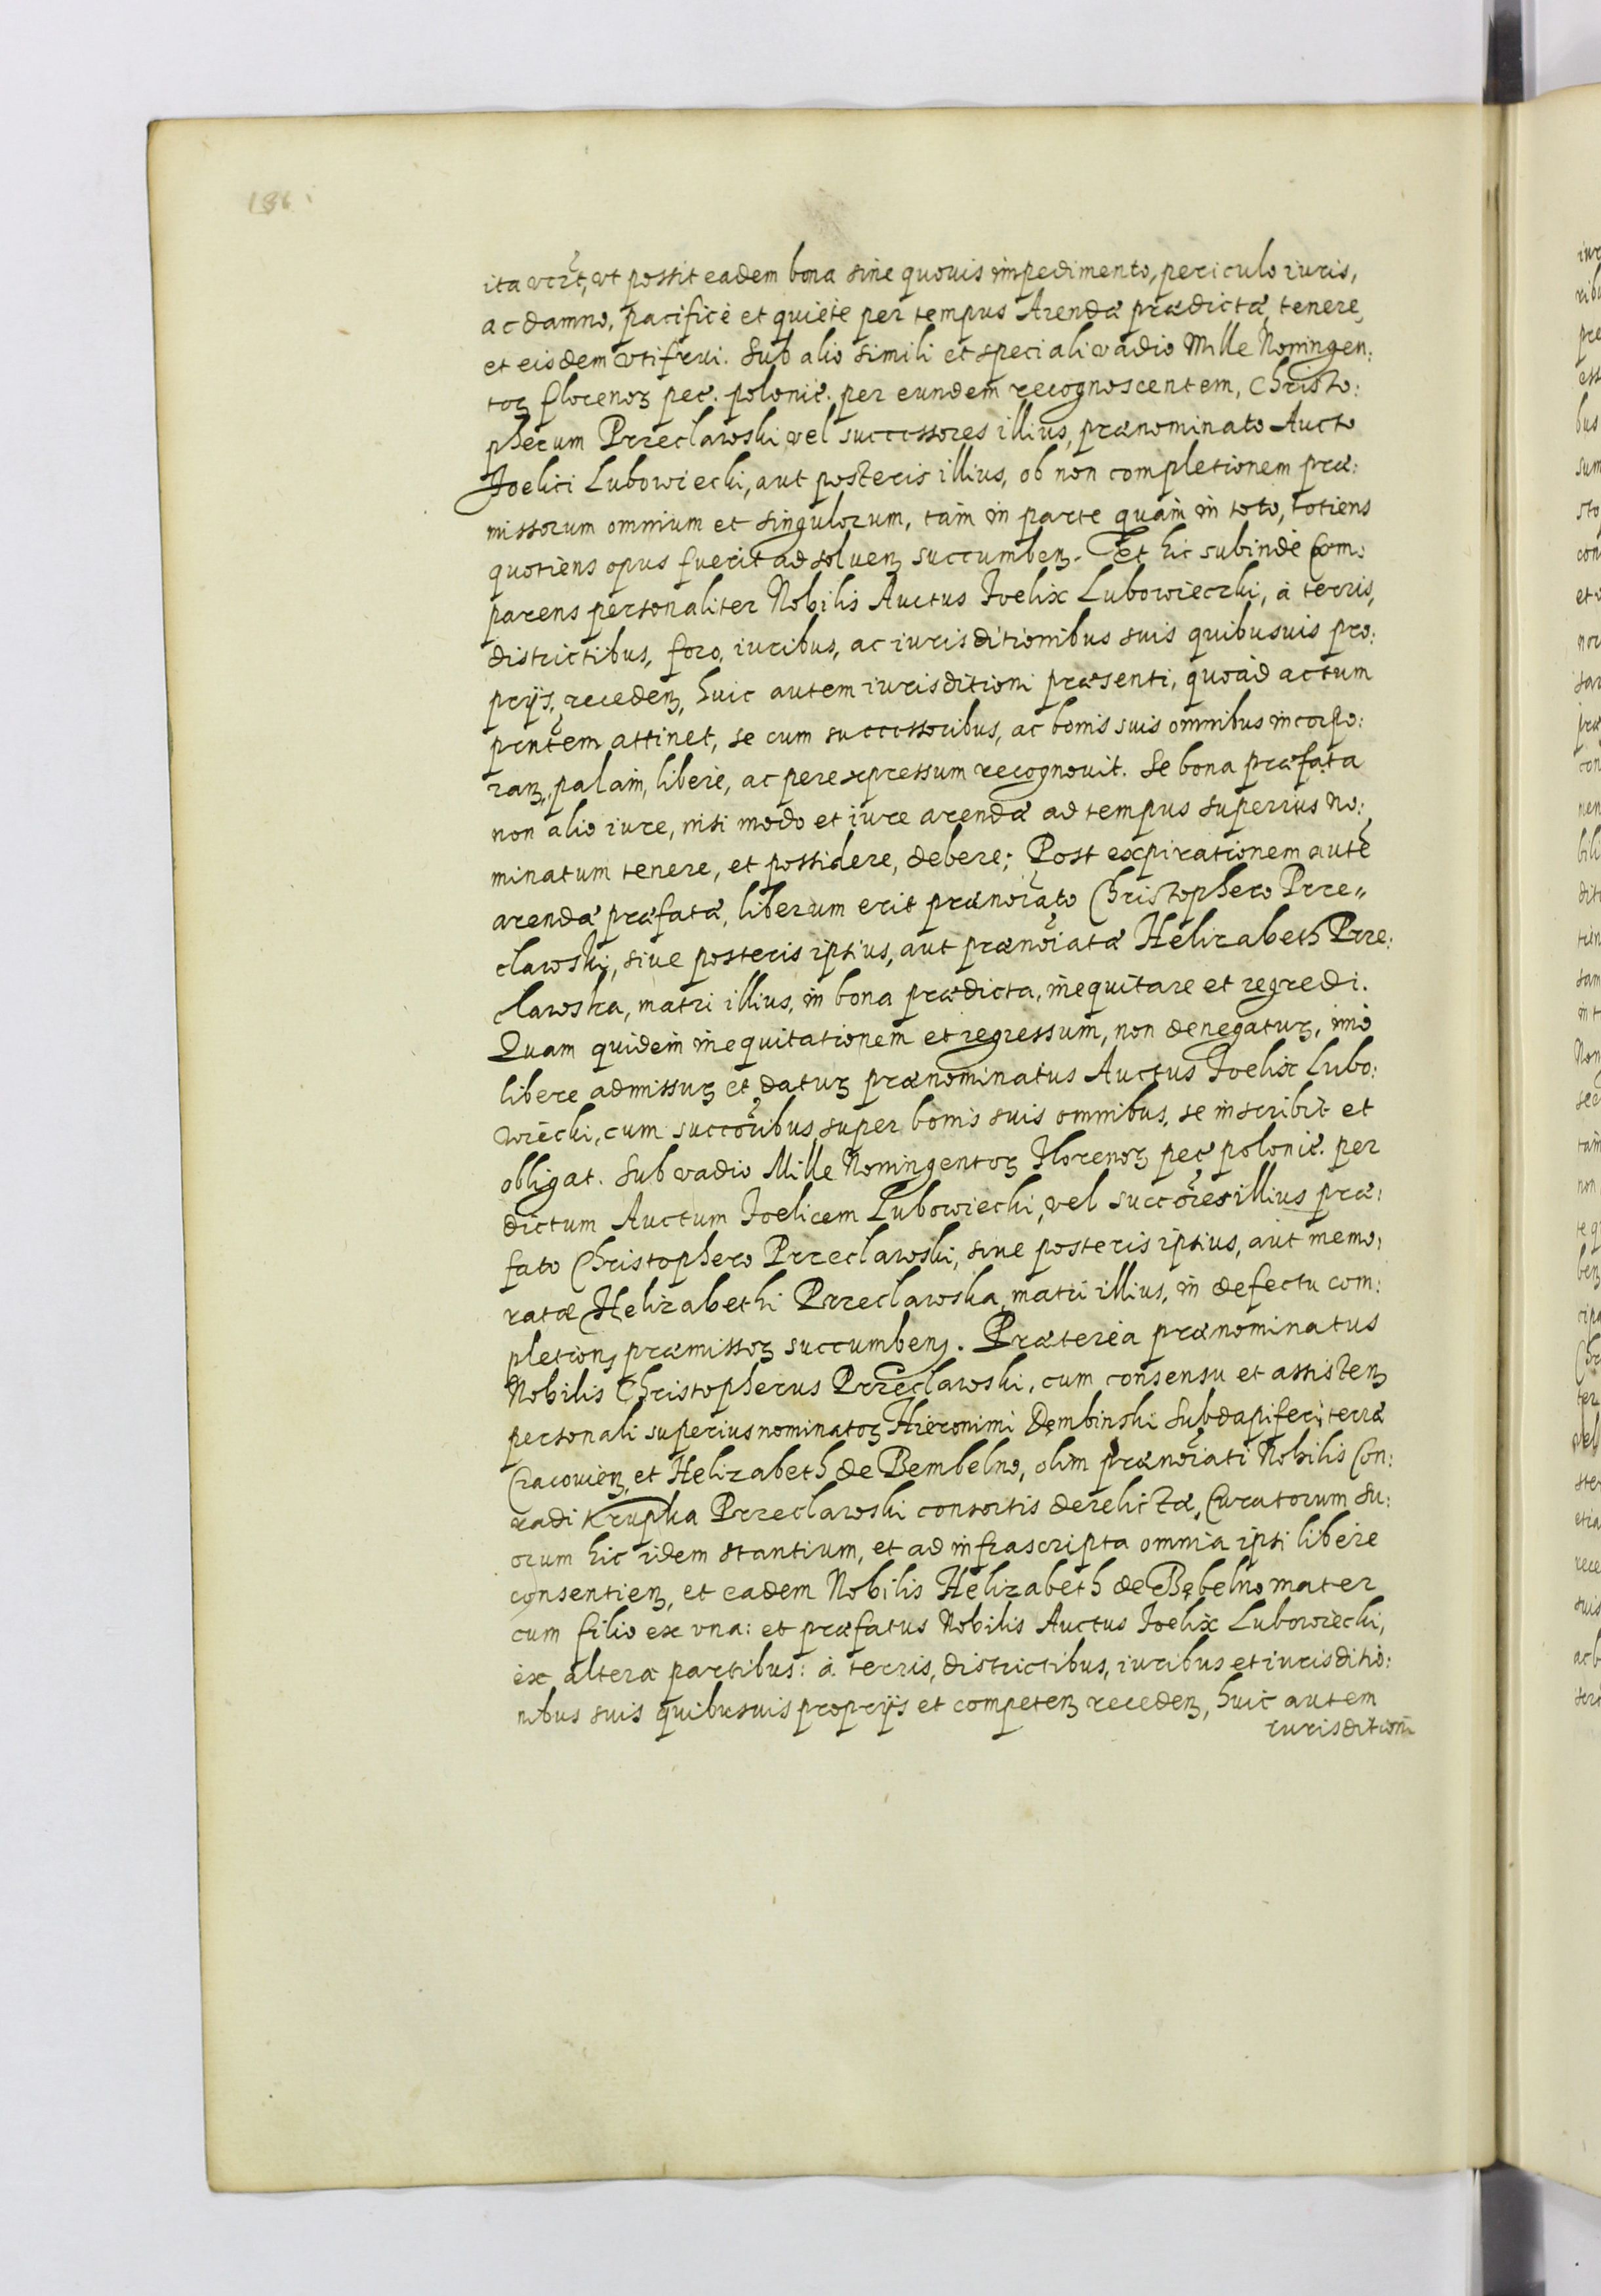 186
ita vt, vt possit eadem bona sine quouis impedimento, periculo iuris,
ac damno, pacificè et quiete per tempus Arendæ prædictæ, tenere,
et eisdem vtifrui. Sub alio simili et speciali vadio Mille Noningen:
toꝝ florenoꝝ pec. polonic. per eundem recognoscentem, Christo:
pherum Przeclawski vel successores illius, prænominato Aucto
Foelici Lubowiecki, aut posteris illius, ob non completionem præ:
missorum omnium et singulorum, tam in parte quàm in toto, totiens
quotiens opus fuerit ad soluenꝫ succumbenꝫ. Et hic subinde Com:
parens personaliter Nobilis Auctus Foelix Lubowieczki, à terris,
districtibus, foro, iuribus, ac iurisditionibus suis quibusuis pro:
prijs, recedenꝫ, huic autem iurisditioni præsenti, quoad actum
pntem attinet, se cum successoribus, ac bonis suis omnibus incorpo:
ranꝫ, palàm, liberè, ac per expressum recognouit. Se bona præfata
non alio iure, nisi modo et iure arendæ ad tempus superius no:
minatum tenere, et possidere, debere; Post expirationem aute
arendæ præfatæ, liberum erit prænoiato Christophero Prze"
clawski, siue posteris ipsius, aut prænoiatæ Helizabeth Prze:
clawska, matri illius, in bona prædicta, inequitare et regredi.
Quam quidem inequitationem et regressum, non denegaturꝫ, imo
libere admissurꝫ et daturꝫ prænominatus Auctus Foelix Lubo:
wiecki, cum succoribus, super bonis suis omnibus, se inscribit et
obligat. Sub vadio Mille Noningentoꝝ Florenoꝝ pec polonic. per
dictum Auctum Foelicem Lubowiecki, vel succores illius præ:
fato Christophero Przeclawski, siue posteris ipsius, aut memo:
ratæ Helizabethi Przeclawska, matri illius, in defectu com:
pletionꝫ præmissoꝝ succumbenꝫ. Præterea prænominatus
Nobilis Christopherus Przeclawski, cum consensu et assistenꝫ
personali superius nominatoꝝ Hieronimi Dembinski Subdapiferi, terræ
Cracouienꝫ, et Helizabeth de Bembelno, olim prænoiati Nobilis Con:
radi Krupka Przeclawski consortis derelictæ, Curatorum su:
orum hic ridem stantium, et ad infrascripta omnia ipsi libere
consentienꝫ, et eadem Nobilis Helizabeth de Bębelno mater
cum filio ex vna: et præfatus Nobilis Auctus Foelix Lubowiecki,
ex altera partibus: à terris, districtibus, iuribus et iurisditio:
nibus suis quibusuis proprijs et competenꝫ recedenꝫ, huic autem
iurisditioni